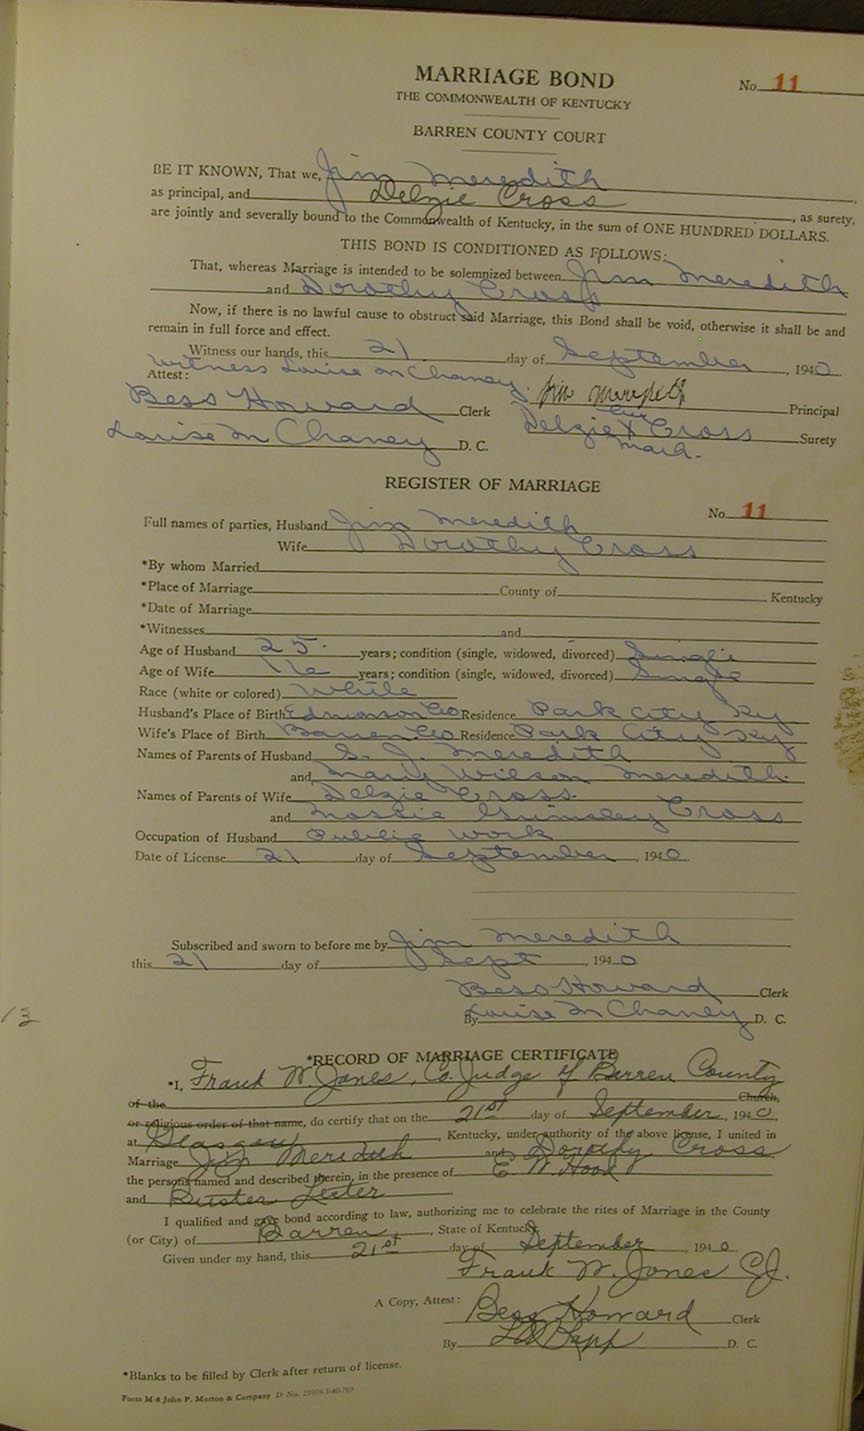 MARRIAGE BOND
No. 11
THE COMMONWEALTH OF KENTUCKY
BARREN COUNTY COURT
BE IT KNOWN, That we, Jim Meredith
as principal, and Delzie Cross, as surety,
are jointly and severally bound to the Commonwealth of Kentucky, in the sum of ONE HUNDRED DOLLARS.
THIS BOND IS CONDITIONED AS FOLLOWS:
That, whereas Marriage is intended to be solemnized between Jim Meredith
and Dorothy Cross
Now, if there is no lawful cause to obstruct said Marriage, this Bond shall be void, otherwise it shall be and
remain in full force and effect.
Witness our hands, this 21 day of September, 1940
Attest: Witness Louise McChaney Jim Meredith Principal
Bess Howard Clerk Delzie X Cross Surety
Louise McChaney D. C.
REGISTER OF MARRIAGE
No. 11
Full names of parties, Husband Jim Meredith
Wife Dorothy Cross
*By whom Married
*Place of Marriage County of Kentucky
*Date of Marriage
*Witnesses and
Age of Husband 25 years; condition (single, widowed, divorced) Single
Age of Wife 16 years; condition (single, widowed, divorced) Single
Race (white or colored) White
Husband's Place of Birth Edmonson Co Residence Park City Ky
Wife's Place of Birth Barren Co Residence Park City Ky
Names of Parents of Husband Meredith
and Wilson Meredith
Names of Parents of Wife Delzie Cross
and Cross
Occupation of Husband Public Work
Date of License 21 day of September, 1940
Subscribed and sworn to before me by Jim Meredith
this 21 day of Sept, 1940
Bess Howard Clerk
By Louise McChaney D. C.
13
*RECORD OF MARRIAGE CERTIFICATE
*I, Frank W. Jones, Co. Judge of Barren County
of the Church,
or religious order of that name, do certify that on the 21st day of September, 1940,
at Glasgow, Kentucky, under authority of the above license, I united in
Marriage Jim Meredith and Dorothy Cross
the persons named and described therein, in the presence of E W Hood
and Buster Leeter
I qualified and gave bond according to law, authorizing me to celebrate the rites of Marriage in the County
(or City) of Barren, State of Kentucky.
Given under my hand, this 21st day of September, 1940
Frank W. Jones CJ.
A Copy, Attest: Bess Howard Clerk
By D. C.
*Blanks to be filled by Clerk after return of license.
Form M-8 John P. Morton & Company